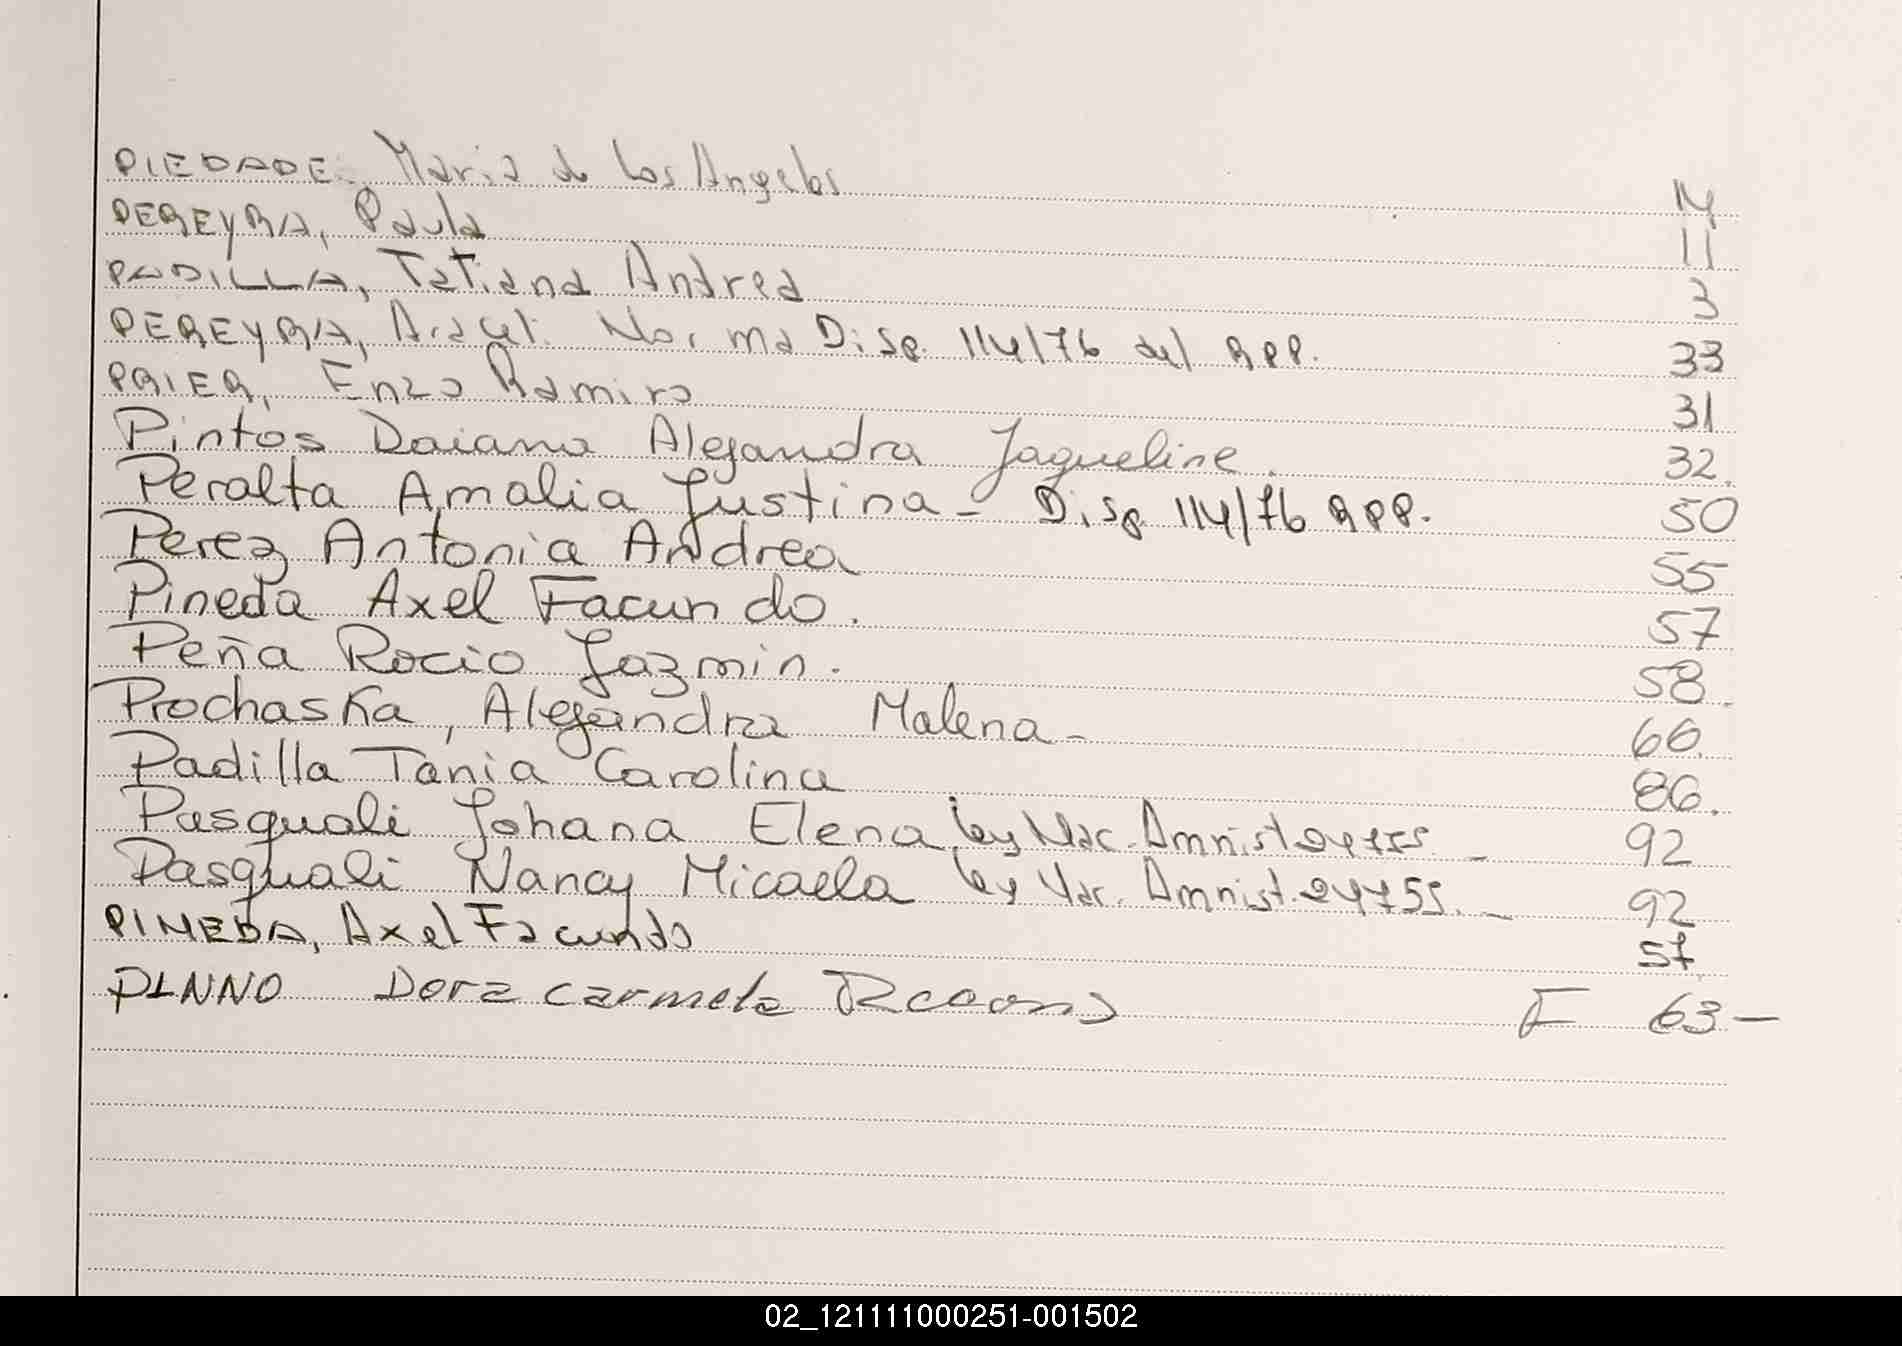 PIEDADE, Maria de los Angeles 14
PEREYRA, Paula 11
PADILLA, Tatiana Andrea 3
PEREYRA, Araceli Norma Disp. 114/76 del RPP. 33
PRIER, Enzo Ramiro 31
Pintos Daiana Alejandra Jaqueline. 32.
Peralta Amalia Justina - Disp. 114/76 RPP. 50
Perez Antonia Andrea 55
Pineda Axel Facundo. 57
Peña Rocio Jazmin. 58.
Prochaska, Alejandra Malena - 66.
Padilla Tania Carolina 86.
Pasquali Johana Elena, ley Nac. Amnist 24755 - 92
Pasquali Nancy Micaela ley Nac. Amnist. 24755. - 92
PINEDA, Axel Facundo 57
PINNO Dora Carmela F 63 -
02_121111000251-001502